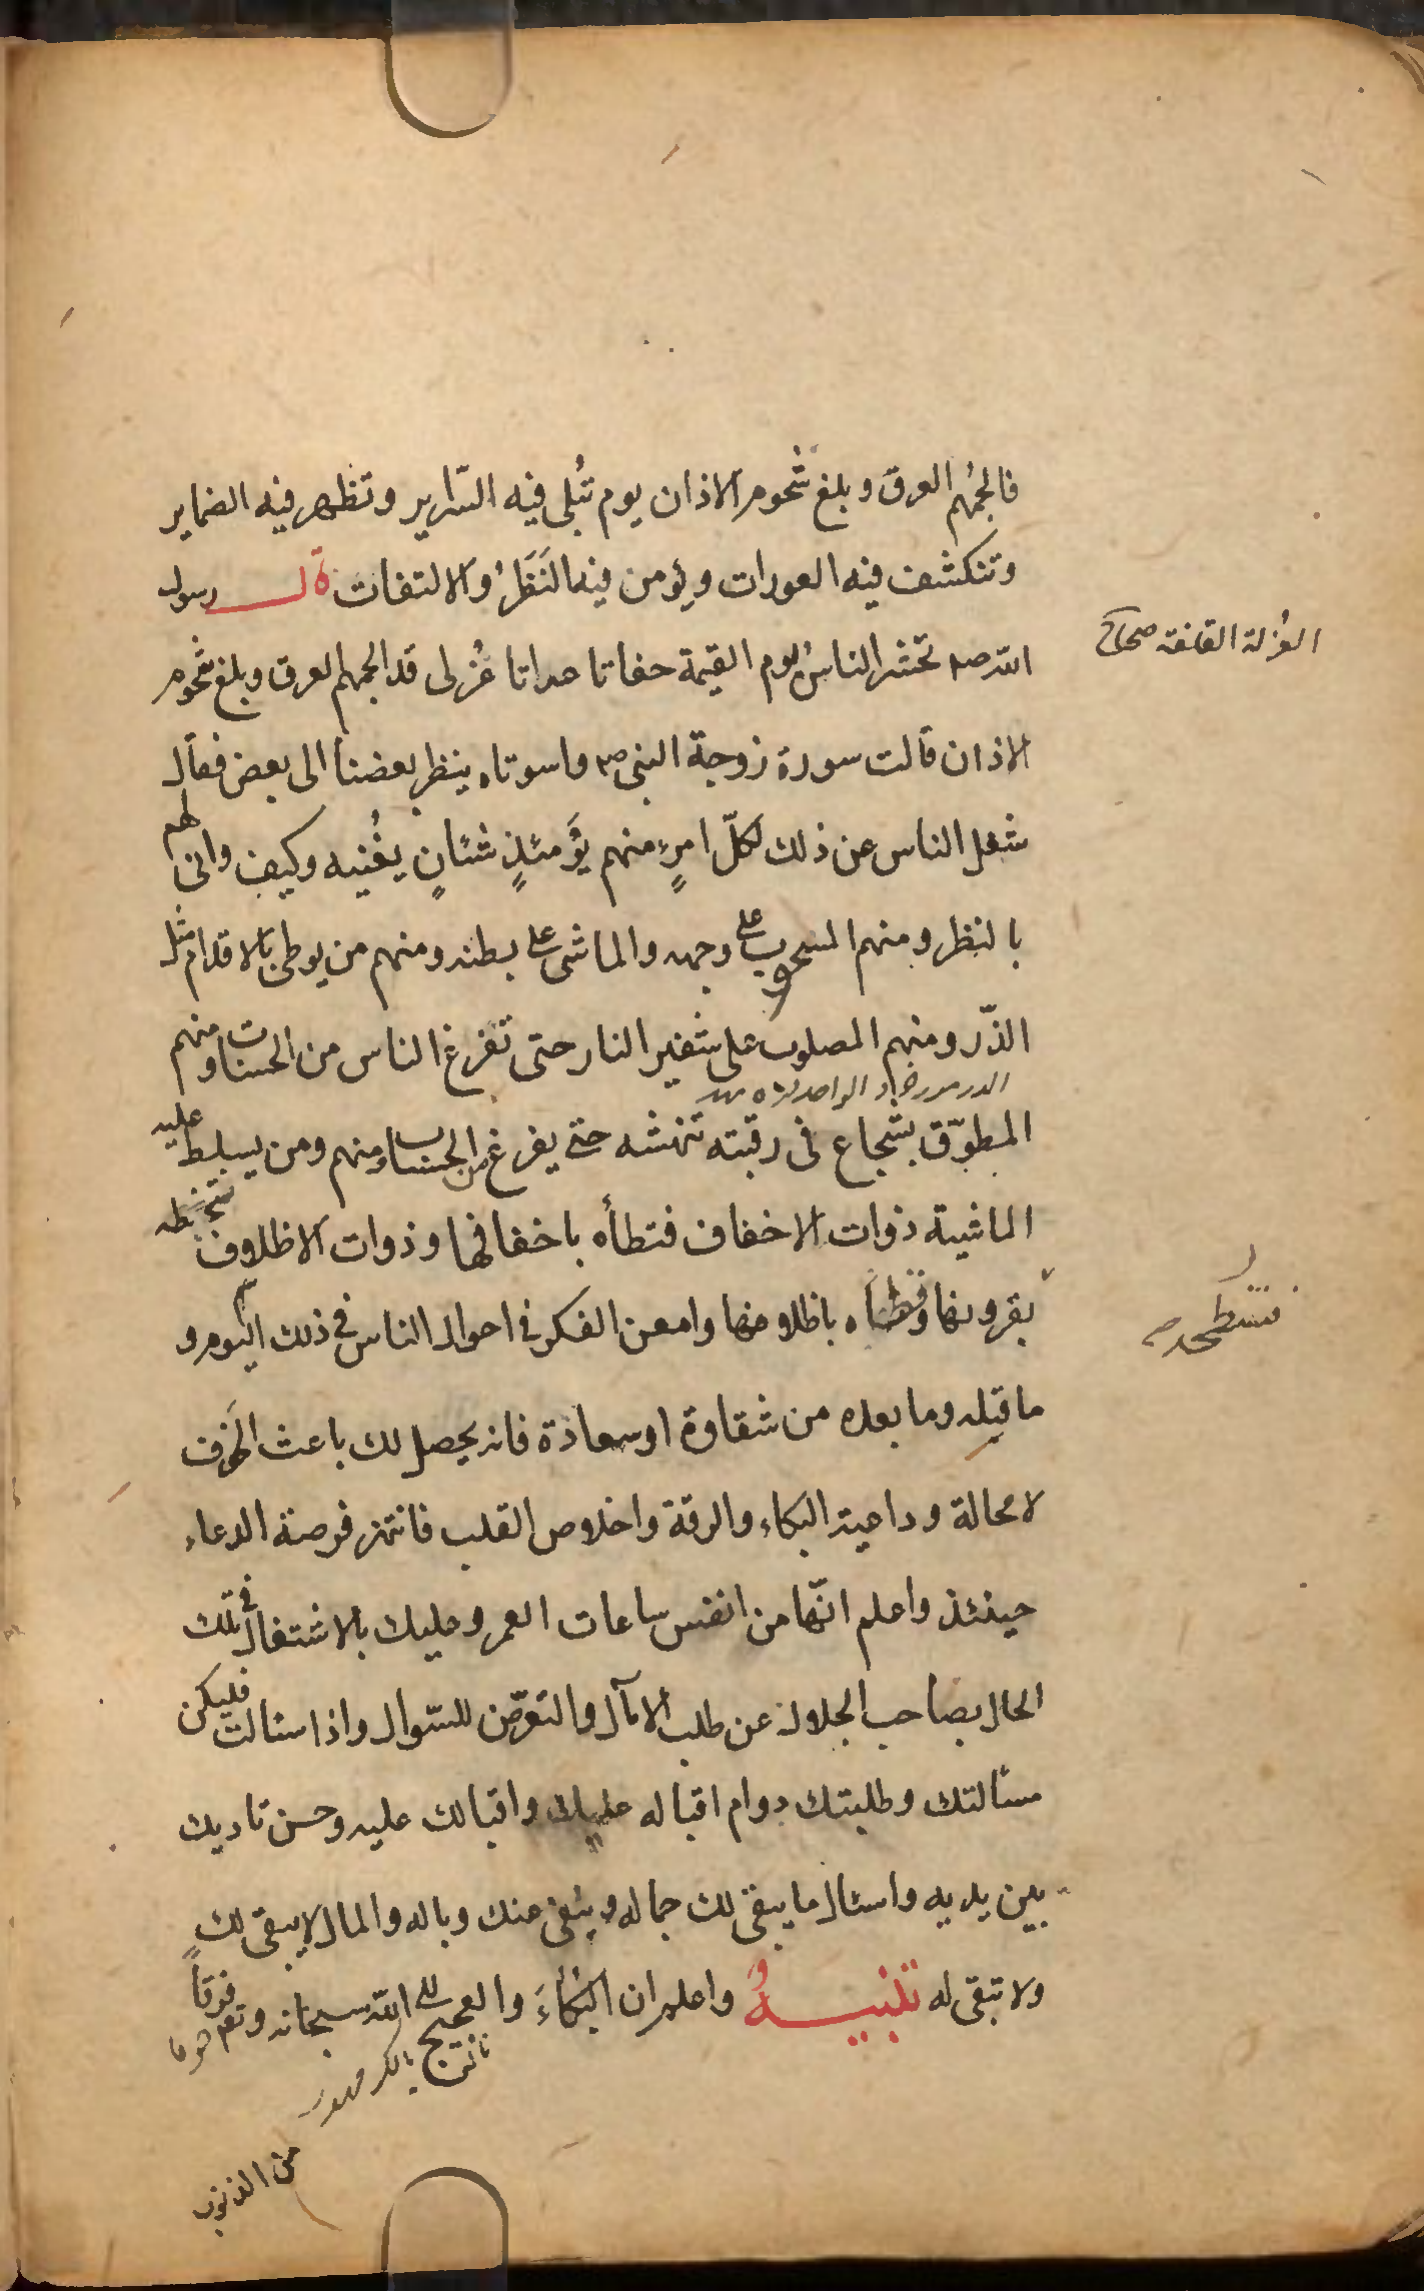 فالجمهم العرق و بلغ شحوم الاذان يوم تُبلى فيه السّراير و تظهر فيه الضماير
وتنكشف فيه العورات ويؤمن فيه النَظَرُ والالتفات قال رسول
الله ص تحشر الناسُ يوم القيمة حفاتا عراتا عُزلى قد الجمهم العرق و بلغ شحوم
العُزلة القلفة صحاح
الاذان قالت سورة زوجة النبى ص واسوتاه ينظر بعضنا الى بعض فقال
شغل الناس عن ذلك لكلّ امرٍء منهم يَؤمئذٍ شئانٍ يغُنيه وكيف وانى لهم
بالنظر ومنهم المسحوب على وجهه والماشى على بطنه ومنهم من يوطى بالاقدام مثل
الذّر ومنهم المصلوب على شفير النار حتى تفرغ الناس من الحسنات ومنهم
المطوّق بشجاع فى رقبته تنهشه حتى يفرغ من الحساب ومنهم ومن يسلط عليه
الماشية ذوات الاخفاف فتطأه باخفافها وذوات الاظلاف
بقرونها وتطأه باظلافها وامعن الفكر فى احوال الناس فى ذلك اليوم و
ما قبله وما بعده من شقاوة او سعادة فانه يحصل لك باعث الخوف
لا محالة وداعية البكاء والرقة واخلاص القلب فانتهز فرصة الدعاء
حينئذ واعلم انّها من انفس ساعات العمر وعليك بالاشتغال فى تلك
الحال بصاحب الجلال عن طلب الامآل والتعرّض للسّوال واذا سئالت فليكن
مسئالتك وطلبتك دوام اقباله عليك واقبالك عليه وحسن تاديك
بين يديه واسئال ما يبقى لك جماله وينفى عنك وباله والمال لا يبقى لك
ولا تبقى له تنبيهٌ و واعلم ان البُكاءَ والعجيج الى الله سبحانه وتع فرقاً
من الذنوب